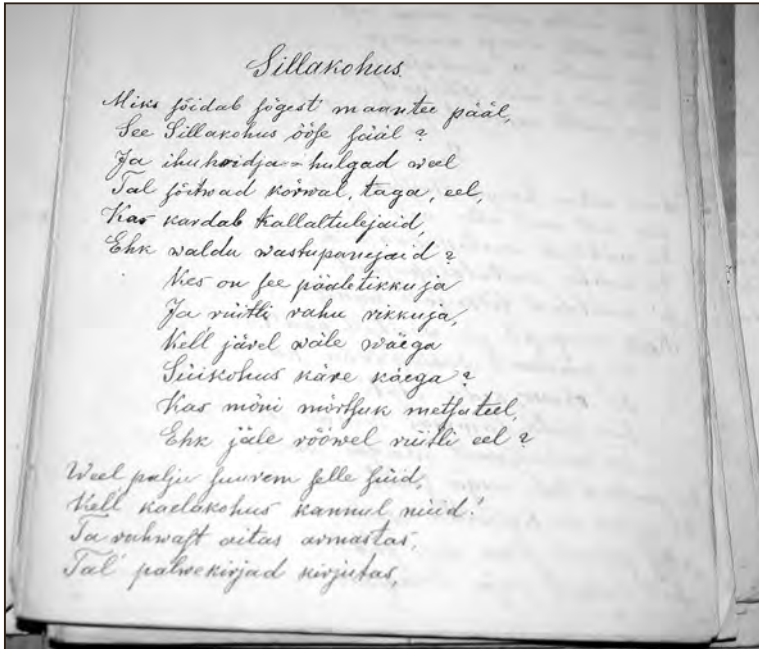 Sillakohus.
Miks sõidab sõgest maantee pääl,
See Sillakohus ööse sääl?
Ja ihuhoidja-hulgad weel
Tal sõitwad kõrwal, taga, eel,
Kas kardab kallaltulejaid,
Ehk waldu wastupanejaid?
Kes on see pääletikkuja
Ja rüütli rahu rikkuja,
Kell järel wäle wäega
Süükohus käre käega?
Kas mõni mõrtsuk metsateel,
Ehk jäle rööwel rüütli eel?
Weel palju suurem selle süüd,
Kell kaelakohus kannul nüüd!
Ta rahwast aitas armastas,
Tal' palwekirjad kirjutas,